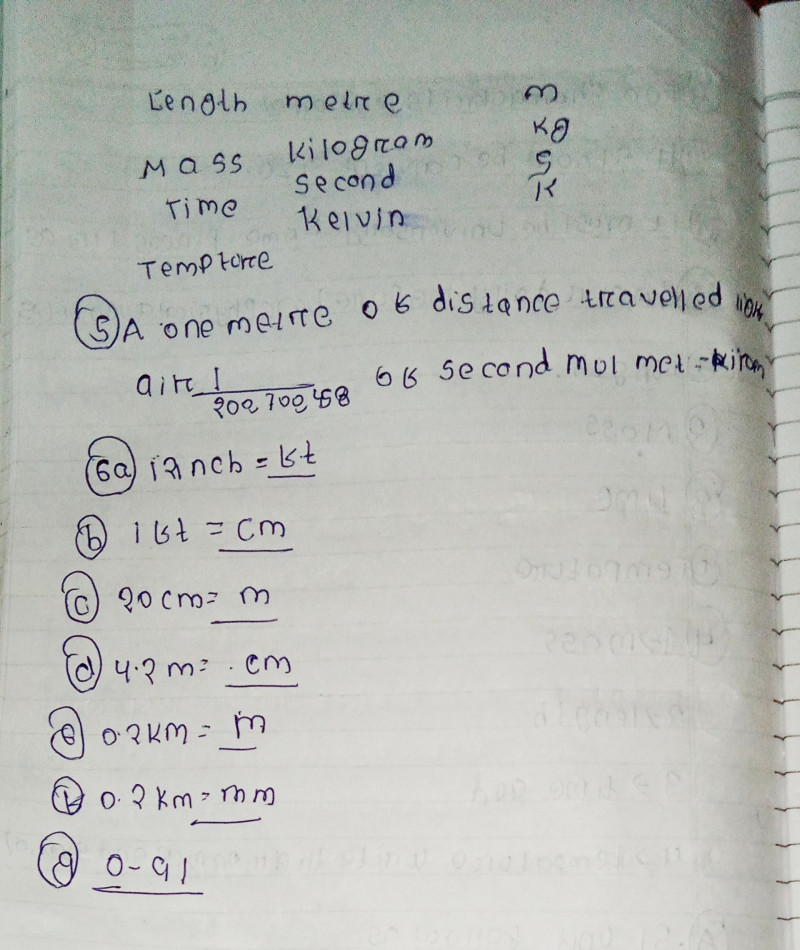 Length metre m
Mass Kilogram kg
Time second S
Temptorre Kelvin K
⑤ A one metre of distance travelled
air 1/202,702,458 of second
6a i2nch = ft
b 1ft = cm
c 20 cm = m
d 4.2 m = .cm
e 0.2 km = m
f 0.2 km = mm
g 0-91